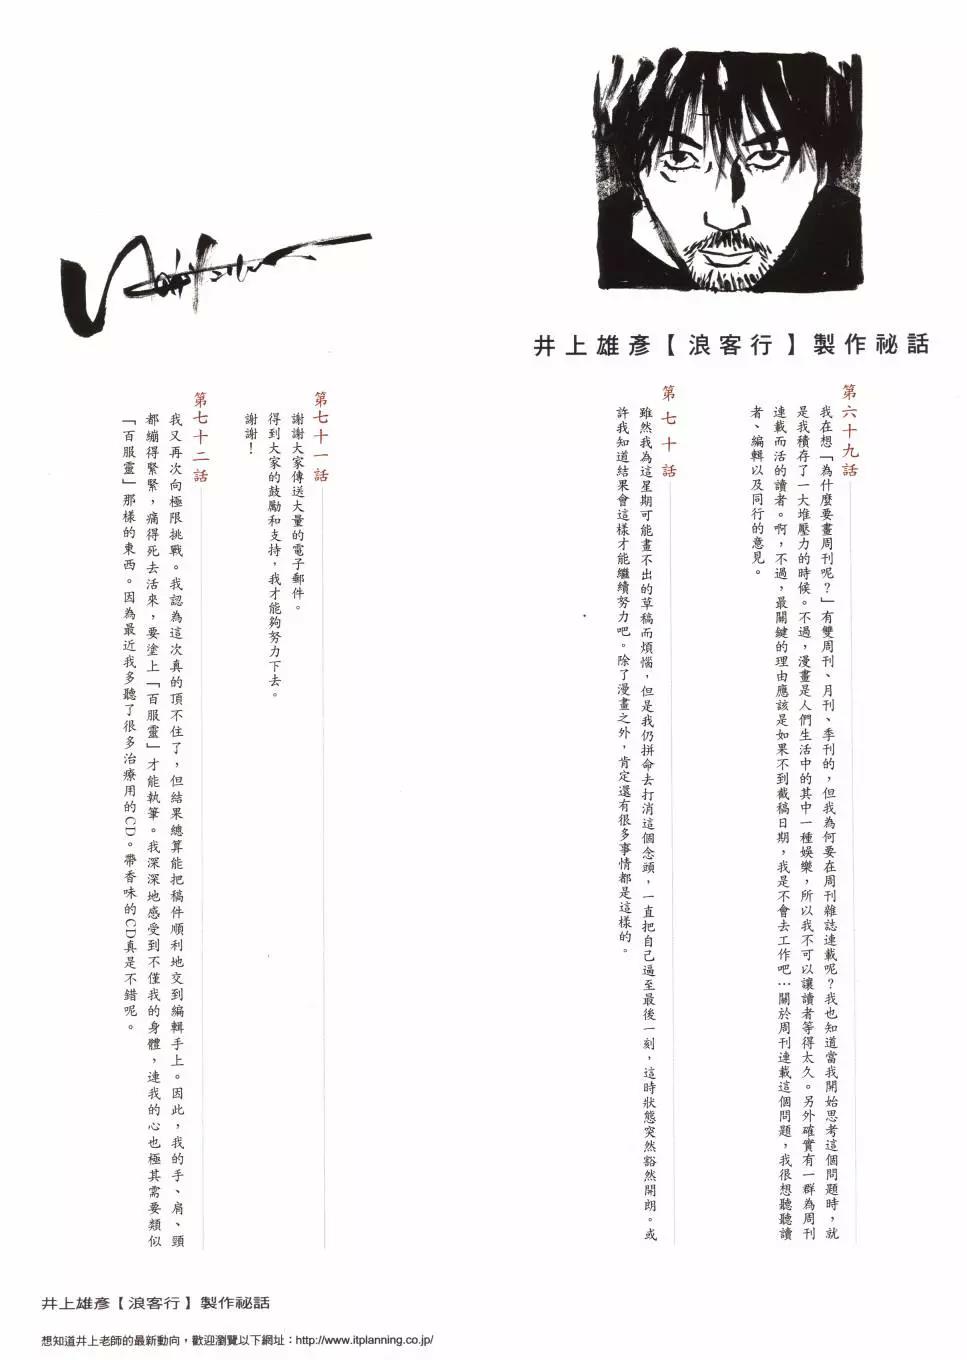 井上雄彥【浪客行】製作祕話
第六十九話
我在想「為什麼要畫周刊呢？」有雙周刊、月刊、季刊的，但我為何要在周刊雜誌連載呢？我也知道當我開始思考這個問題時，就
是我積存了一大堆壓力的時候。不過，漫畫是人們生活中的其中一種娛樂，所以我不可以讓讀者等得太久。另外確實有一群為周刊
連載而活的讀者。啊，不過，最關鍵的理由應該是如果不到截稿日期，我是不會去工作吧…關於周刊連載這個問題，我很想聽聽讀
者、編輯以及同行的意見。
第七十話
雖然我為這星期可能畫不出的草稿而煩惱，但是我仍拼命去打消這個念頭，一直把自己逼至最後一刻，這時狀態突然豁然開朗。或
許我知道結果會這樣才能繼續努力吧。除了漫畫之外，肯定還有很多事情都是這樣的。
第七十一話
謝謝大家傳送大量的電子郵件。
得到大家的鼓勵和支持，我才能夠努力下去。
謝謝！
第七十二話
我又再次向極限挑戰。我認為這次真的頂不住了，但結果總算能把稿件順利地交到編輯手上。因此，我的手、肩、頸
都繃得緊緊，痛得死去活來，要塗上「百服靈」才能執筆。我深深地感受到不僅我的身體，連我的心也極其需要類似
「百服靈」那樣的東西。因為最近我多聽了很多治療用的CD。帶香味的CD真是不錯呢。
井上雄彥【浪客行】製作祕話
想知道井上老師的最新動向，歡迎瀏覽以下網址：http://www.itplanning.co.jp/